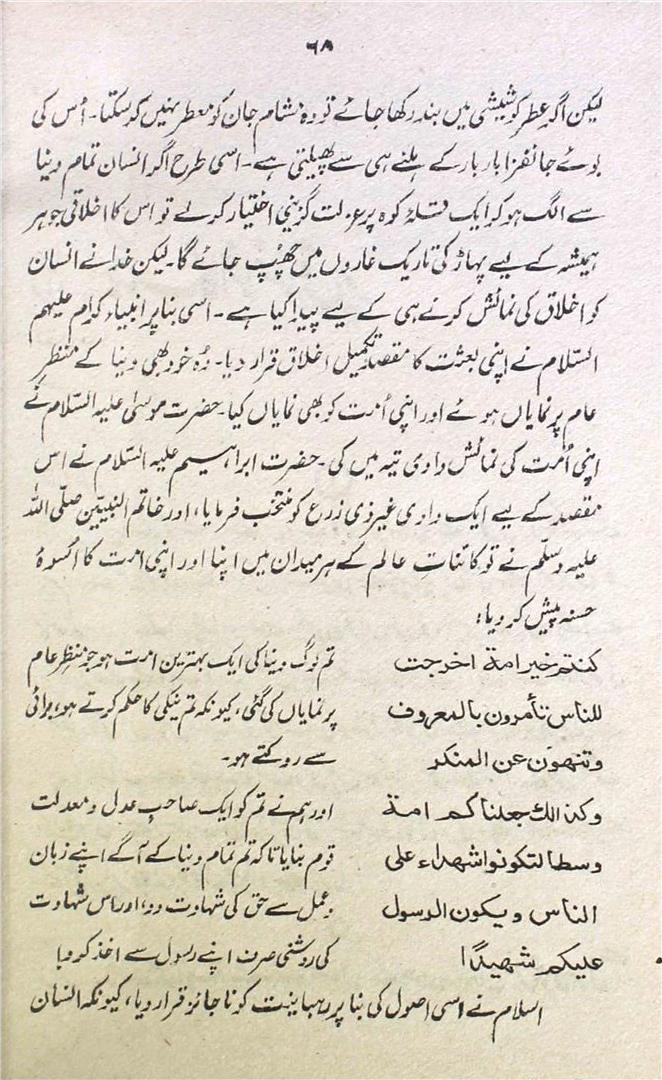 ۶۸
لیکن اگر عطر کو شیشی میں بند رکھا جائے تو وہ مشام جان کو معطر نہیں کر سکتا۔ اُس کی
بوئے جانفزا بار بار کے ہلنے ہی سے پھیلیتی ہے۔ اسی طرح اگر انسان تمام دنیا
سے الگ ہو کر ایک قلۂ کوہ پر عزلت گزینی اختیار کر لے تو اس کا اخلاقی جوہر
ہمیشہ کے لیے پہاڑ کی تاریک غاروں میں چھُپ جائے گا۔ لیکن خدا نے انسان
کو اخلاق کی نمائش کرنے ہی کے لیے پیدا کیا ہے۔ اسی بنا پر انبیاء کرام علیہم
السّلام نے اپنی بعثت کا مقصد تکمیل اخلاق قرار دیا۔ وُہ خود بھی دنیا کے منظرِ
عام پر نمایاں ہوئے اور اپنی اُمت کو بھی نمایاں کیا۔ حضرت موسیٰ علیہ السّلام نے
اپنی اُمت کی نمائش وادی تیہ میں کی۔ حضرت ابراہیم علیہ السّلام نے اس
مقصد کے لیے ایک وادی غیر ذی زرع کو منتخب فرمایا، اور خاتم النبیّین صلّی اللہ
علیہ وسلّم نے تو کائناتِ عالم کے ہر میدان میں اپنا اور اپنی امت کا اُسوۂ
حسنہ پیش کر دیا:
کنتم خیر امة اخرجت تم لوگ دنیا کی ایک بہترین امت ہو جو منظر عام
للناس تأمرون بالمعروف پر نمایاں کی گئی، کیونکہ تم نیکی کا حکم کرتے ہو، برائی
وتنهون عن المنکر سے روکتے ہو۔
وکذالک جعلناکم امة اور ہم نے تم کو ایک صاحبِ عدل و معدلت
وسطا لتکونوا شهداء علی قوم بنایا تاکہ تم تمام دنیا کے آگے اپنے زبان
الناس ویکون الرسول وعمل سے حق کی شہادت دو، اور اس شہادت
علیکم شهیدًا کی روشنی صرف اپنے رسول سے اخذ کرو۔
اسلام نے اسی اصول کی بنا پر رہبانیت کو ناجائز قرار دیا، کیونکہ انسان